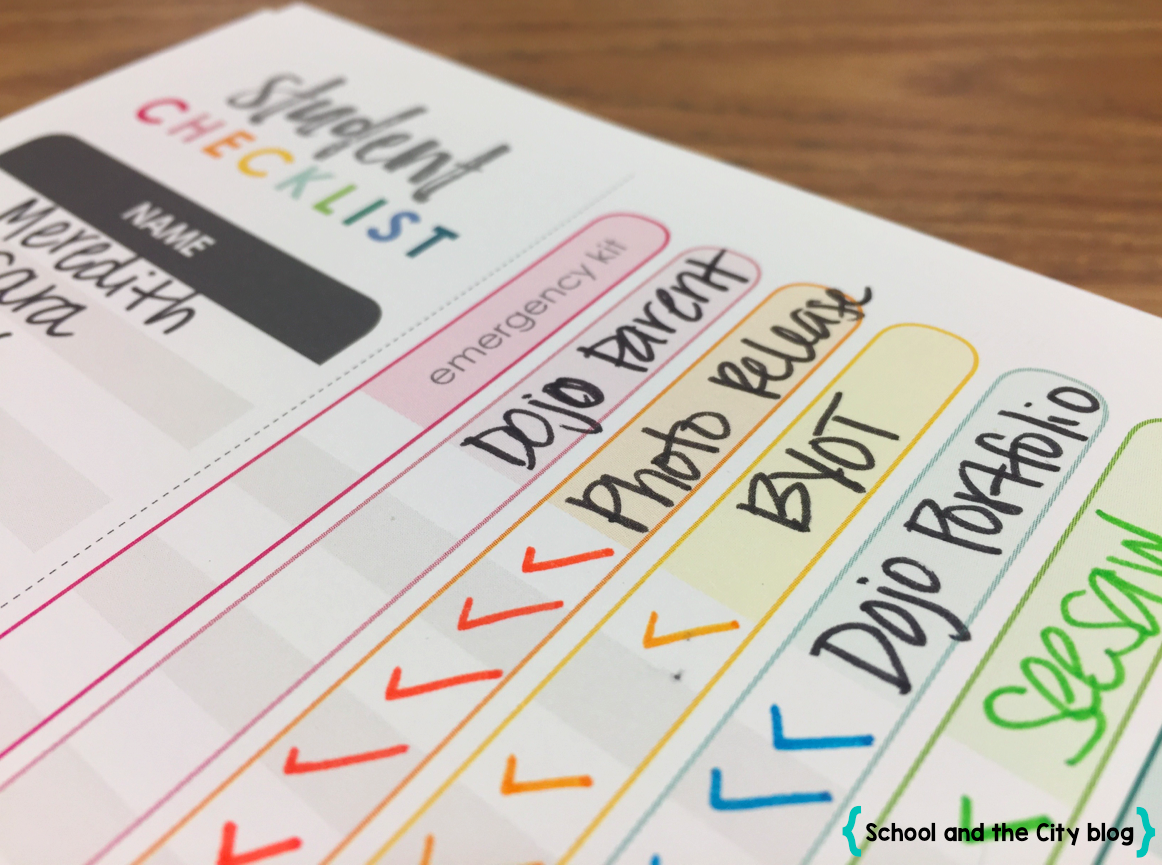 student
CHECKLIST
NAME
Meredith
emergency kit
Dojo Parent
Photo Release
BYOT
Dojo Portfolio
Seesaw
{School and the City blog}